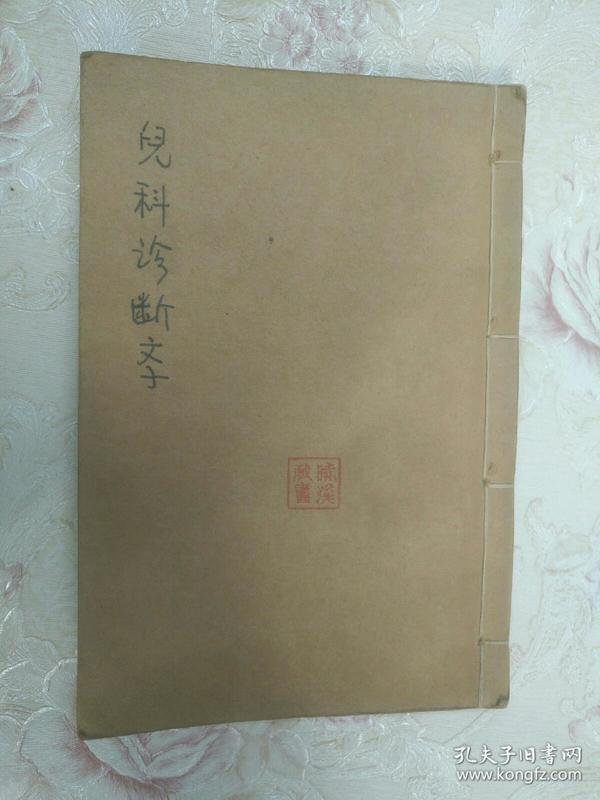 兒科诊断斈
藏書
孔夫子旧书网
www.kongfz.com